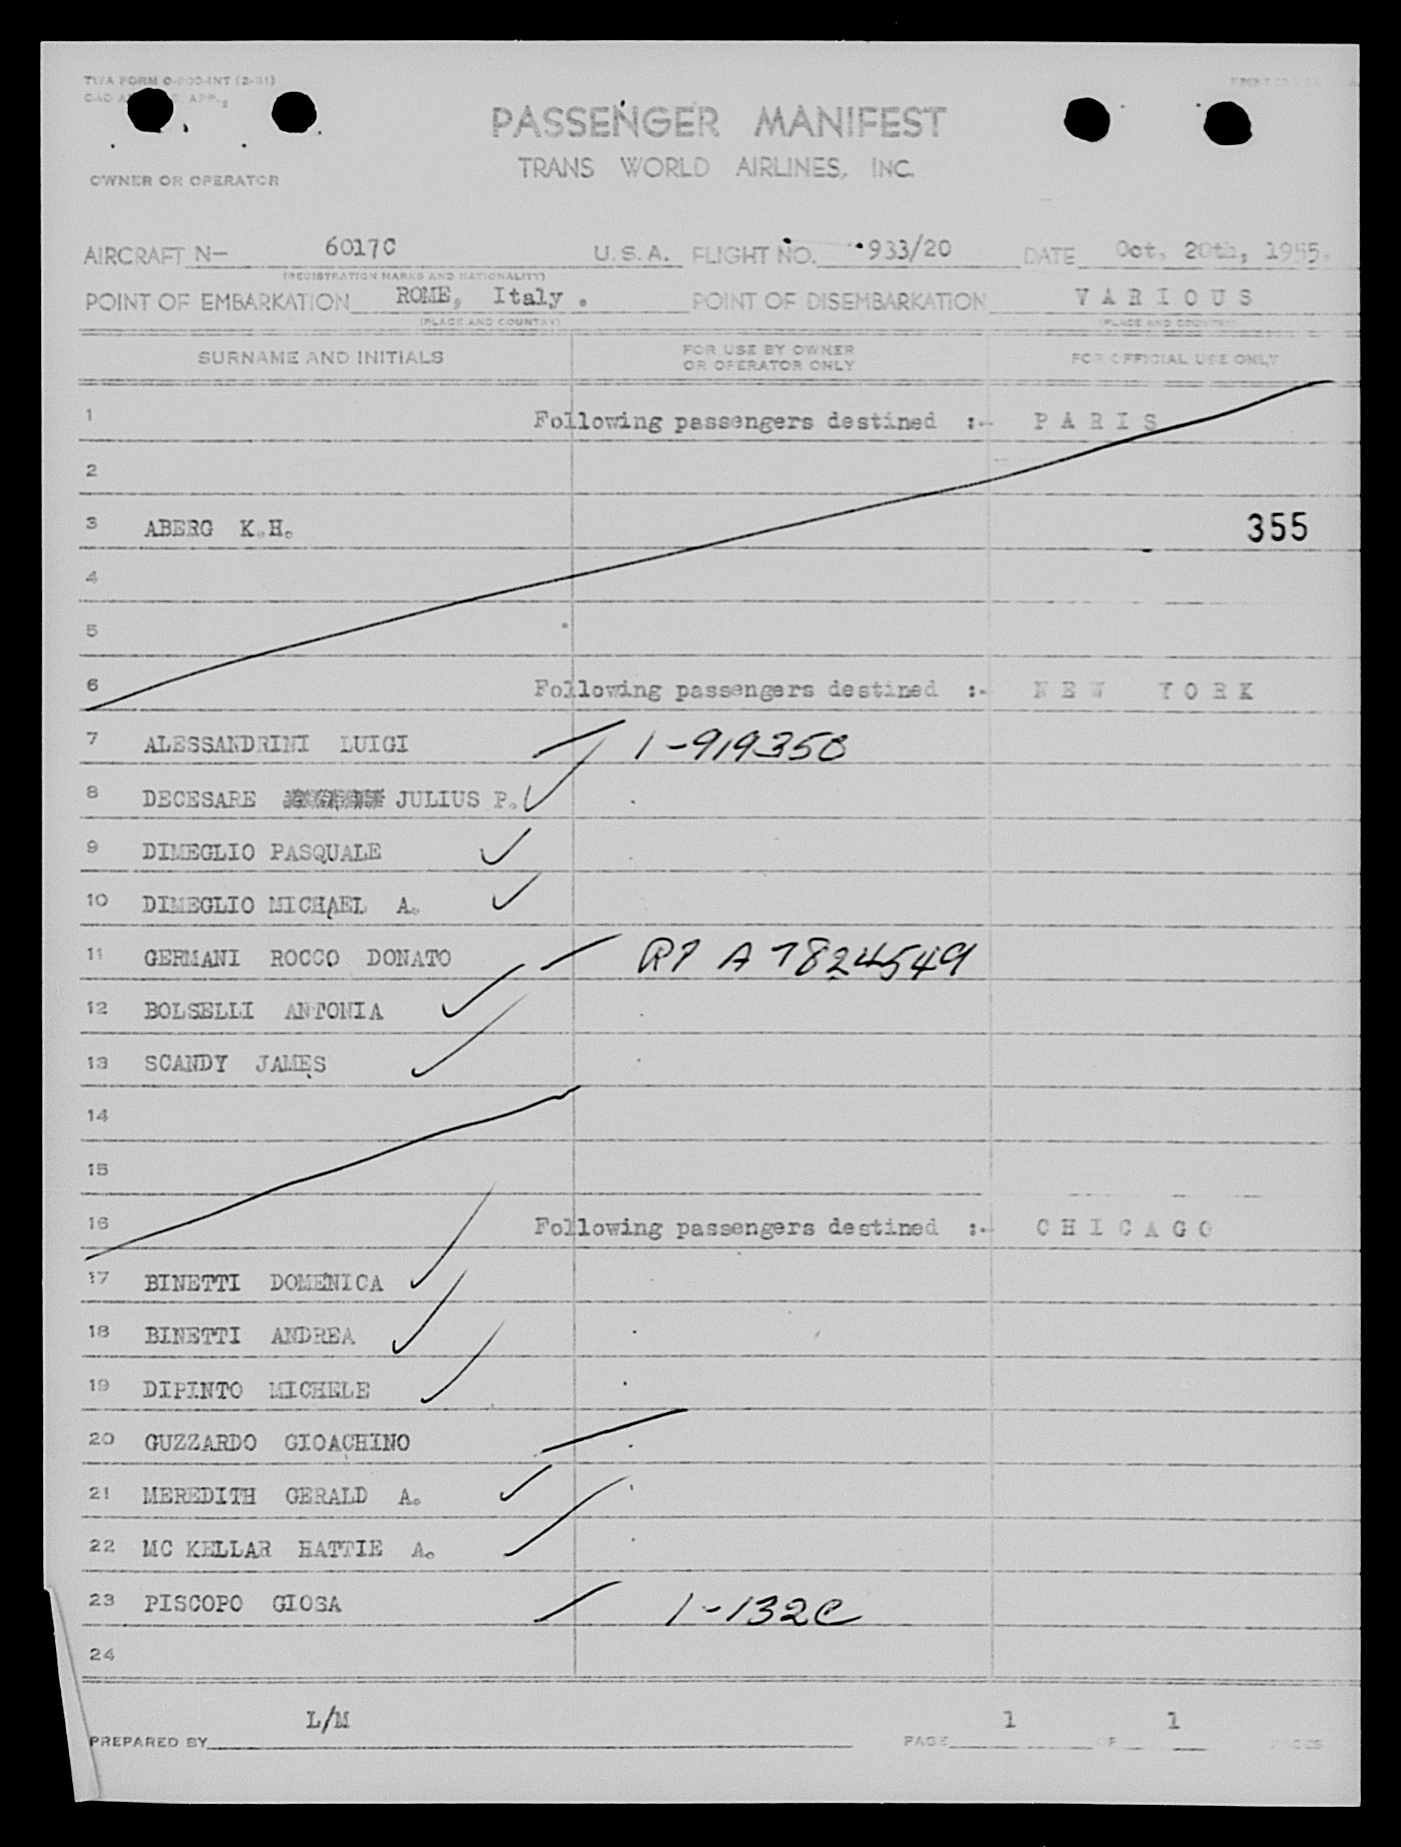 TWA FORM
PASSENGER MANIFEST
TRANS WORLD AIRLINES, INC.
OWNER OR OPERATOR
AIRCRAFT N- 6017C U.S.A. FLIGHT NO. 933/20 DATE Oct. 20th, 1955.
(REGISTRATION MARKS AND NATIONALITY)
POINT OF EMBARKATION ROME, Italy. POINT OF DISEMBARKATION VARIOUS
(PLACE AND COUNTRY) (PLACE AND COUNTRY)
SURNAME AND INITIALS FOR USE BY OWNER OR OPERATOR ONLY FOR OFFICIAL USE ONLY
1 Following passengers destined :- PARIS
2
3 ABERG K.H. 355
4
5
6 Following passengers destined :- NEW YORK
7 ALESSANDRINI LUIGI 1-919358
8 DECESARE JULIUS P.
9 DIMEGLIO PASQUALE
10 DIMEGLIO MICHAEL A.
11 GERMANI ROCCO DONATO RP A7824549
12 BOLSELLI ANTONIA
13 SCANDY JAMES
14
15
16 Following passengers destined :- CHICAGO
17 BINETTI DOMENICA
18 BINETTI ANDREA
19 DIPINTO MICHELE
20 GUZZARDO GIOACHINO
21 MEREDITH GERALD A.
22 MC KELLAR HATTIE A.
23 PISCOPO GIOSA 1-132C
24
PREPARED BY L/M PAGE 1 OF 1 PAGES